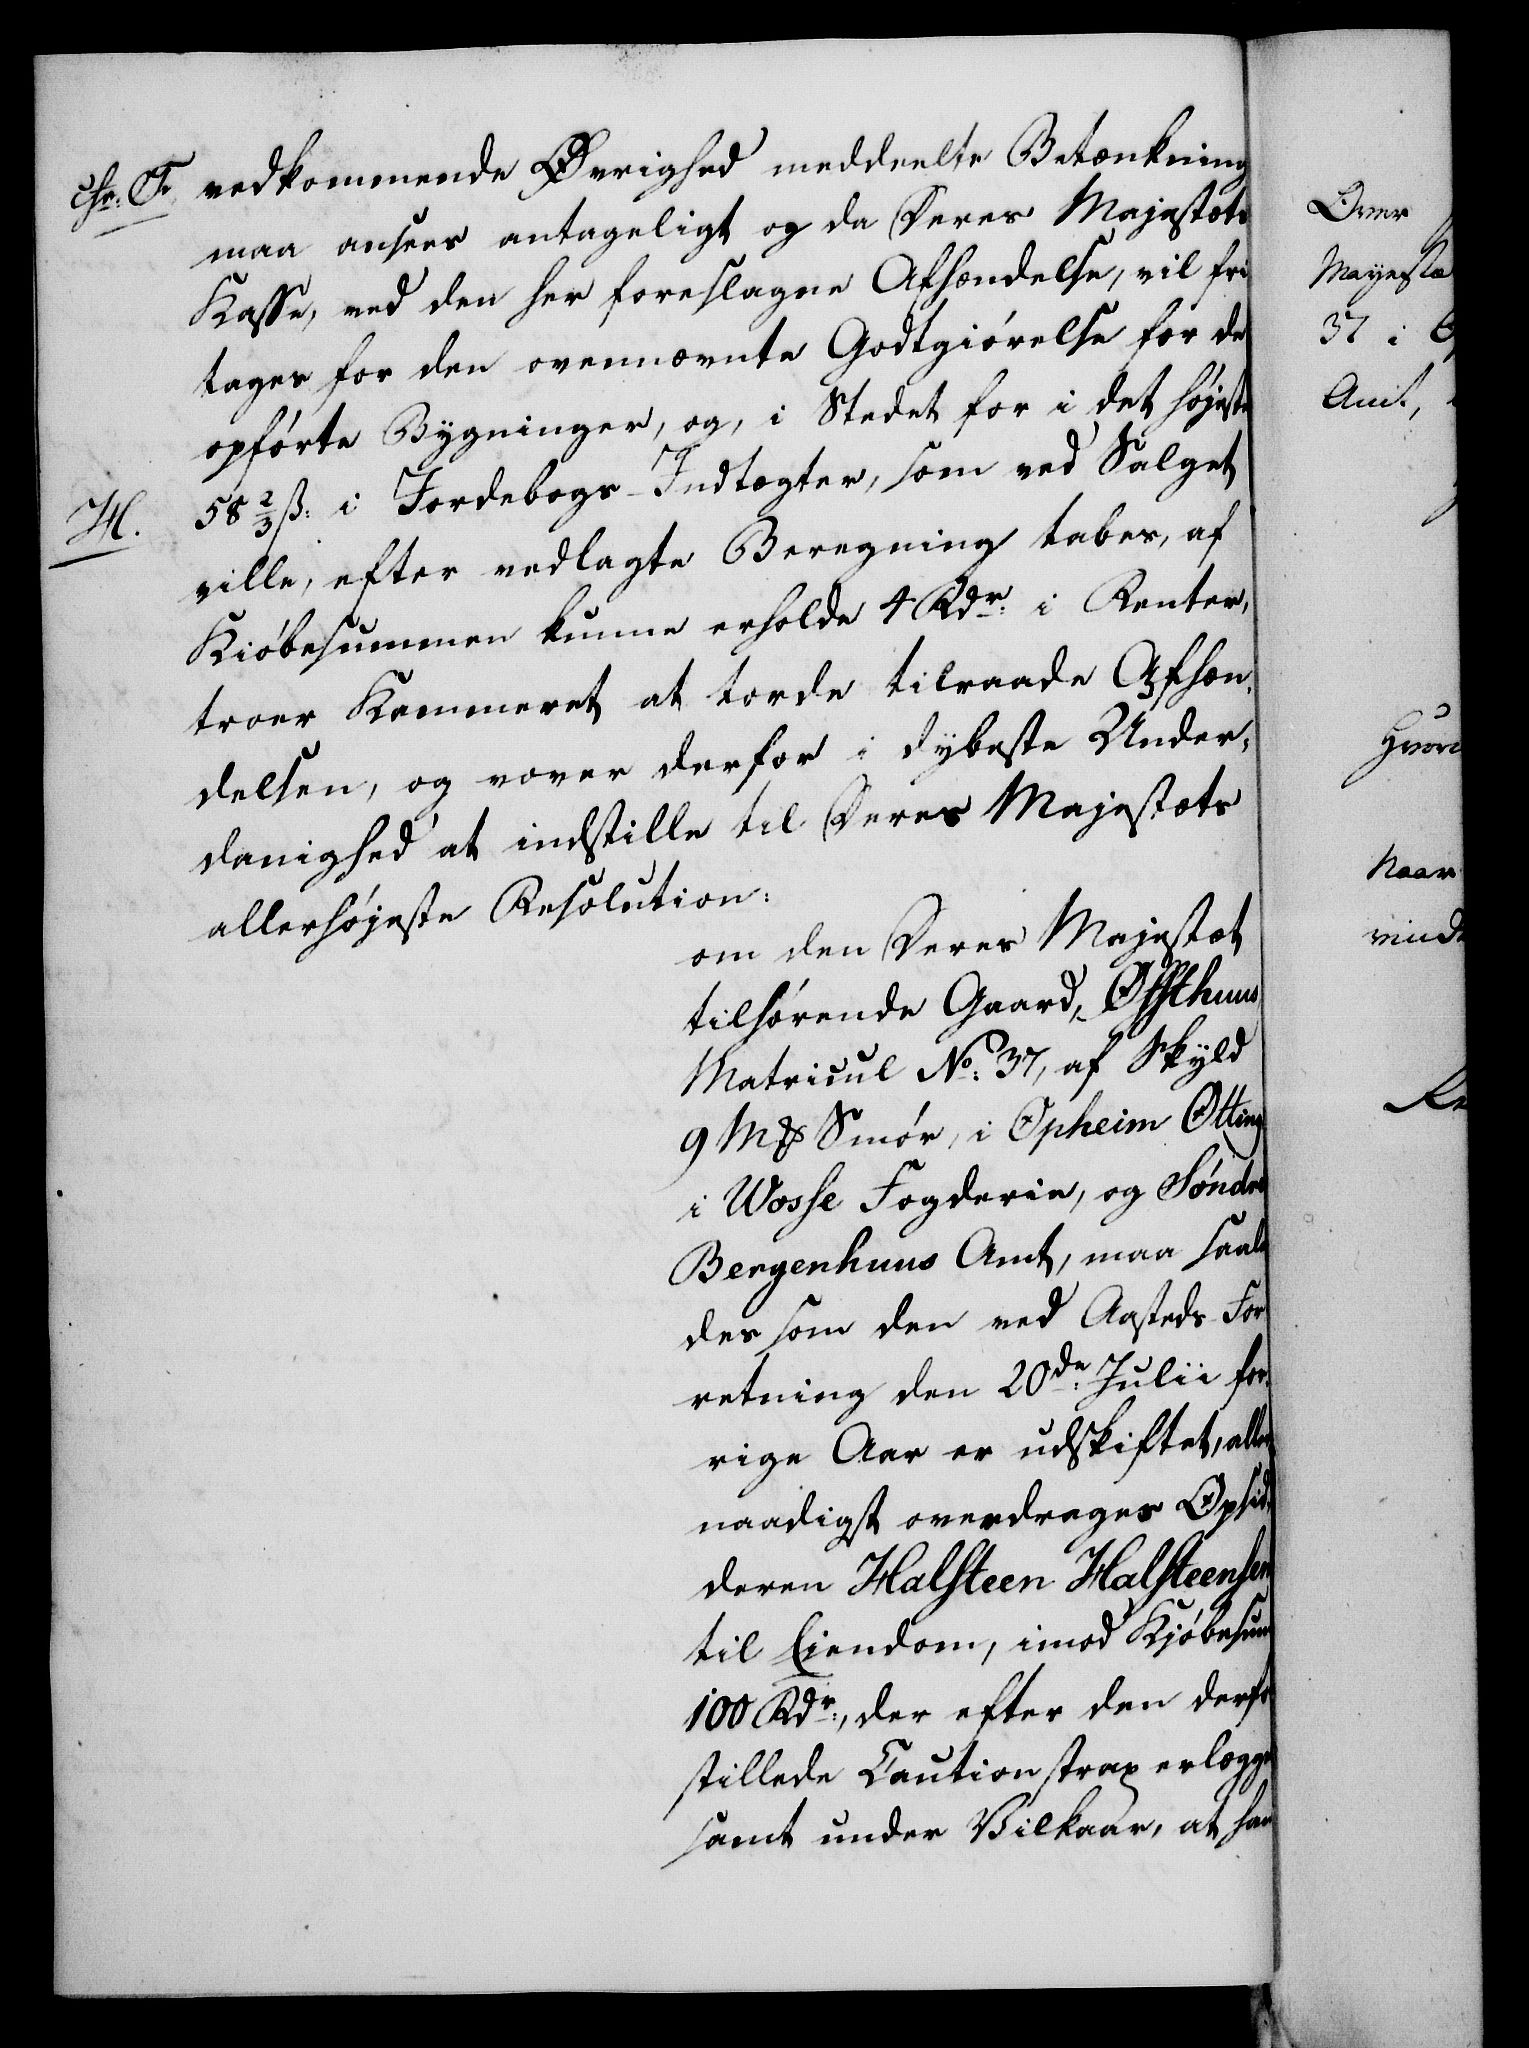 cfr: F. vedkommende Øvrighed meddeelte Betænkning
maa ansees antageligt og da Deres Majestæts
Kasse, ved den her foreslagne Afhændelse, vil fri
tages for den ovennævnte Godtgiörelse for de
opförte Bygninger, og, i Stedet for i det höjeste
H. 58 2/3 ß: i Jordebogs-Indtægter, som ved Salget
ville, efter vedlagte Beregning tabes, af
Kiöbesummen kunne erholde 4 Rdr: i Renter,
troer Kammeret at torde tilraade Afhæn,
delsen, og vover derfor i dybeste Under,
danighed at indstille til Deres Majestæts
allerhöjeste Resolution:
om den Deres Majestæt
tilhörende Gaard,
Matricul No: 37, af Skyld
9 M&#8468; Smör, i Opheim Otting
i Wosse Fogderie, og Söndre
Bergenhuus Amt, maa saale
des som den ved Aasteds-For
retning den 20de: Julii for,
rige Aar er udskiftet, aller
naadigst overdrages Opsid,
deren Halsteen Halsteensen
til Eiendom, imod Kjöbesum
100 Rdr:, der efter den derfo
stillede Caution strax erlægge
samt under Vilkaar, at han
37 i
Amt,
Hvor
Naar